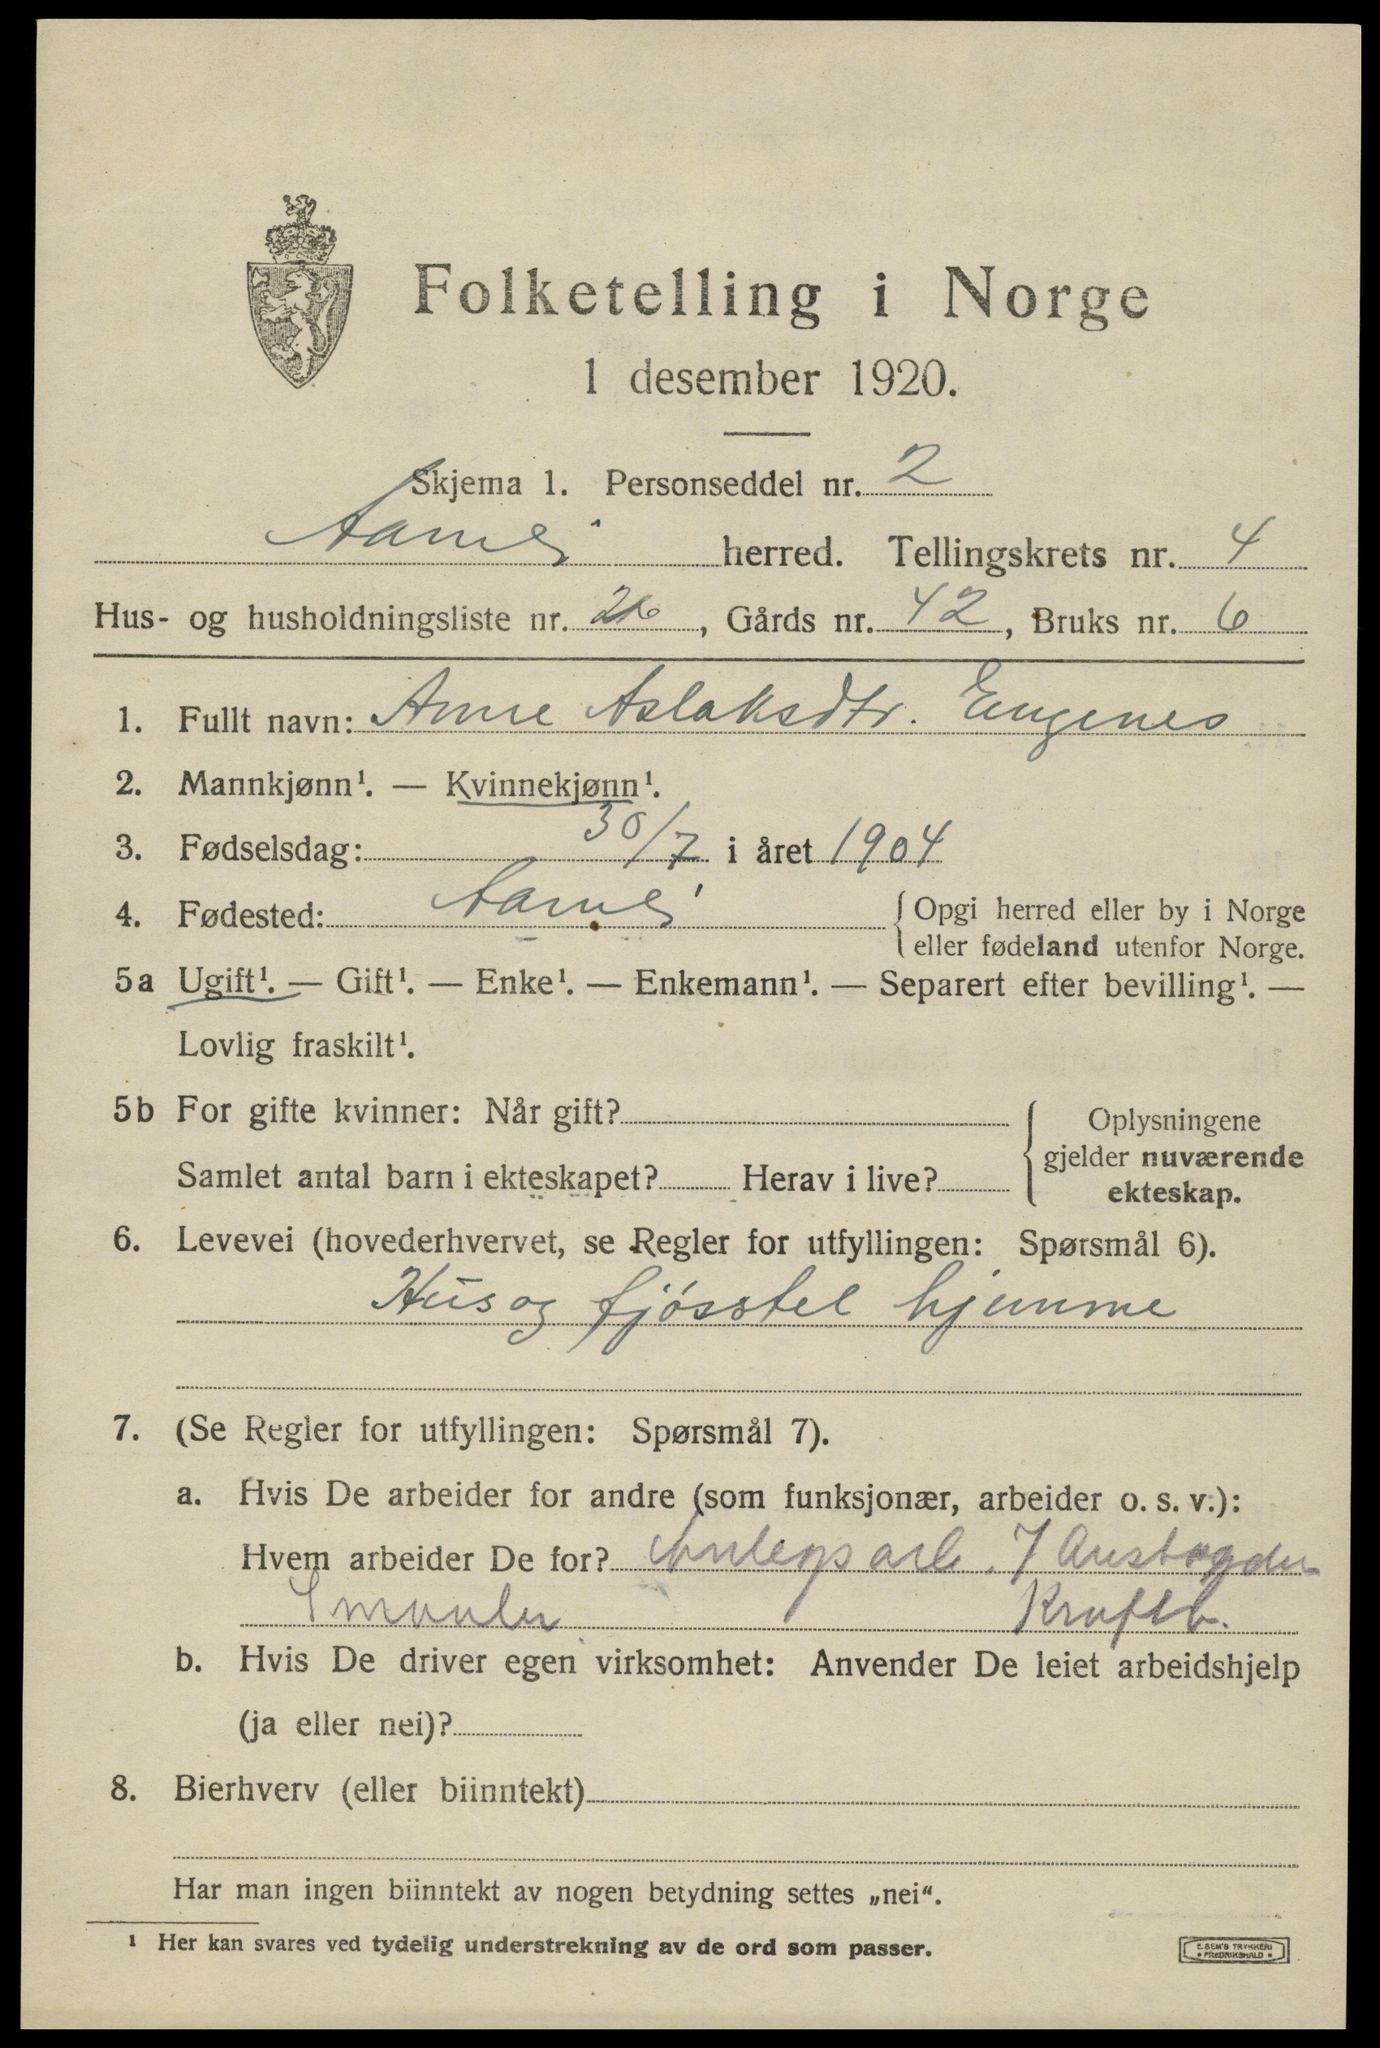 Folketelling i Norge
1 desember 1920.
Skjema 1. Personseddel nr. 2
Aamli herred. Tellingskrets nr. 4
Hus- og husholdningsliste nr. 26, Gårds nr. 42, Bruks nr. 6
1. Fullt navn: Anne Aslaksdtr. Engenes
2. Mannkjønn¹. — Kvinnekjønn¹.
3. Fødselsdag: 30/7 i året 1904
4. Fødested: Aamli { Opgi herred eller by i Norge
eller fødeland utenfor Norge.
5a Ugift¹. — Gift¹. — Enke¹. — Enkemann¹. — Separert efter bevilling¹. —
Lovlig fraskilt¹.
5b For gifte kvinner: Når gift?
Samlet antal barn i ekteskapet? Herav i live?
{ Oplysningene
gjelder nuværende
ekteskap.
6. Levevei (hovederhvervet, se Regler for utfyllingen: Spørsmål 6).
Hus og fjøsstel hjemme
7. (Se Regler for utfyllingen: Spørsmål 7).
a. Hvis De arbeider for andre (som funksjonær, arbeider o. s. v.):
Hvem arbeider De for? Anlegsarb. / Austagder
Kraftv.
b. Hvis De driver egen virksomhet: Anvender De leiet arbeidshjelp
(ja eller nei)?
8. Bierhverv (eller biinntekt)
Har man ingen biinntekt av nogen betydning settes „nei“.
¹ Her kan svares ved tydelig understrekning av de ord som passer.
E. SEM'S TRYKKERI
* FREDRIKSHALD *